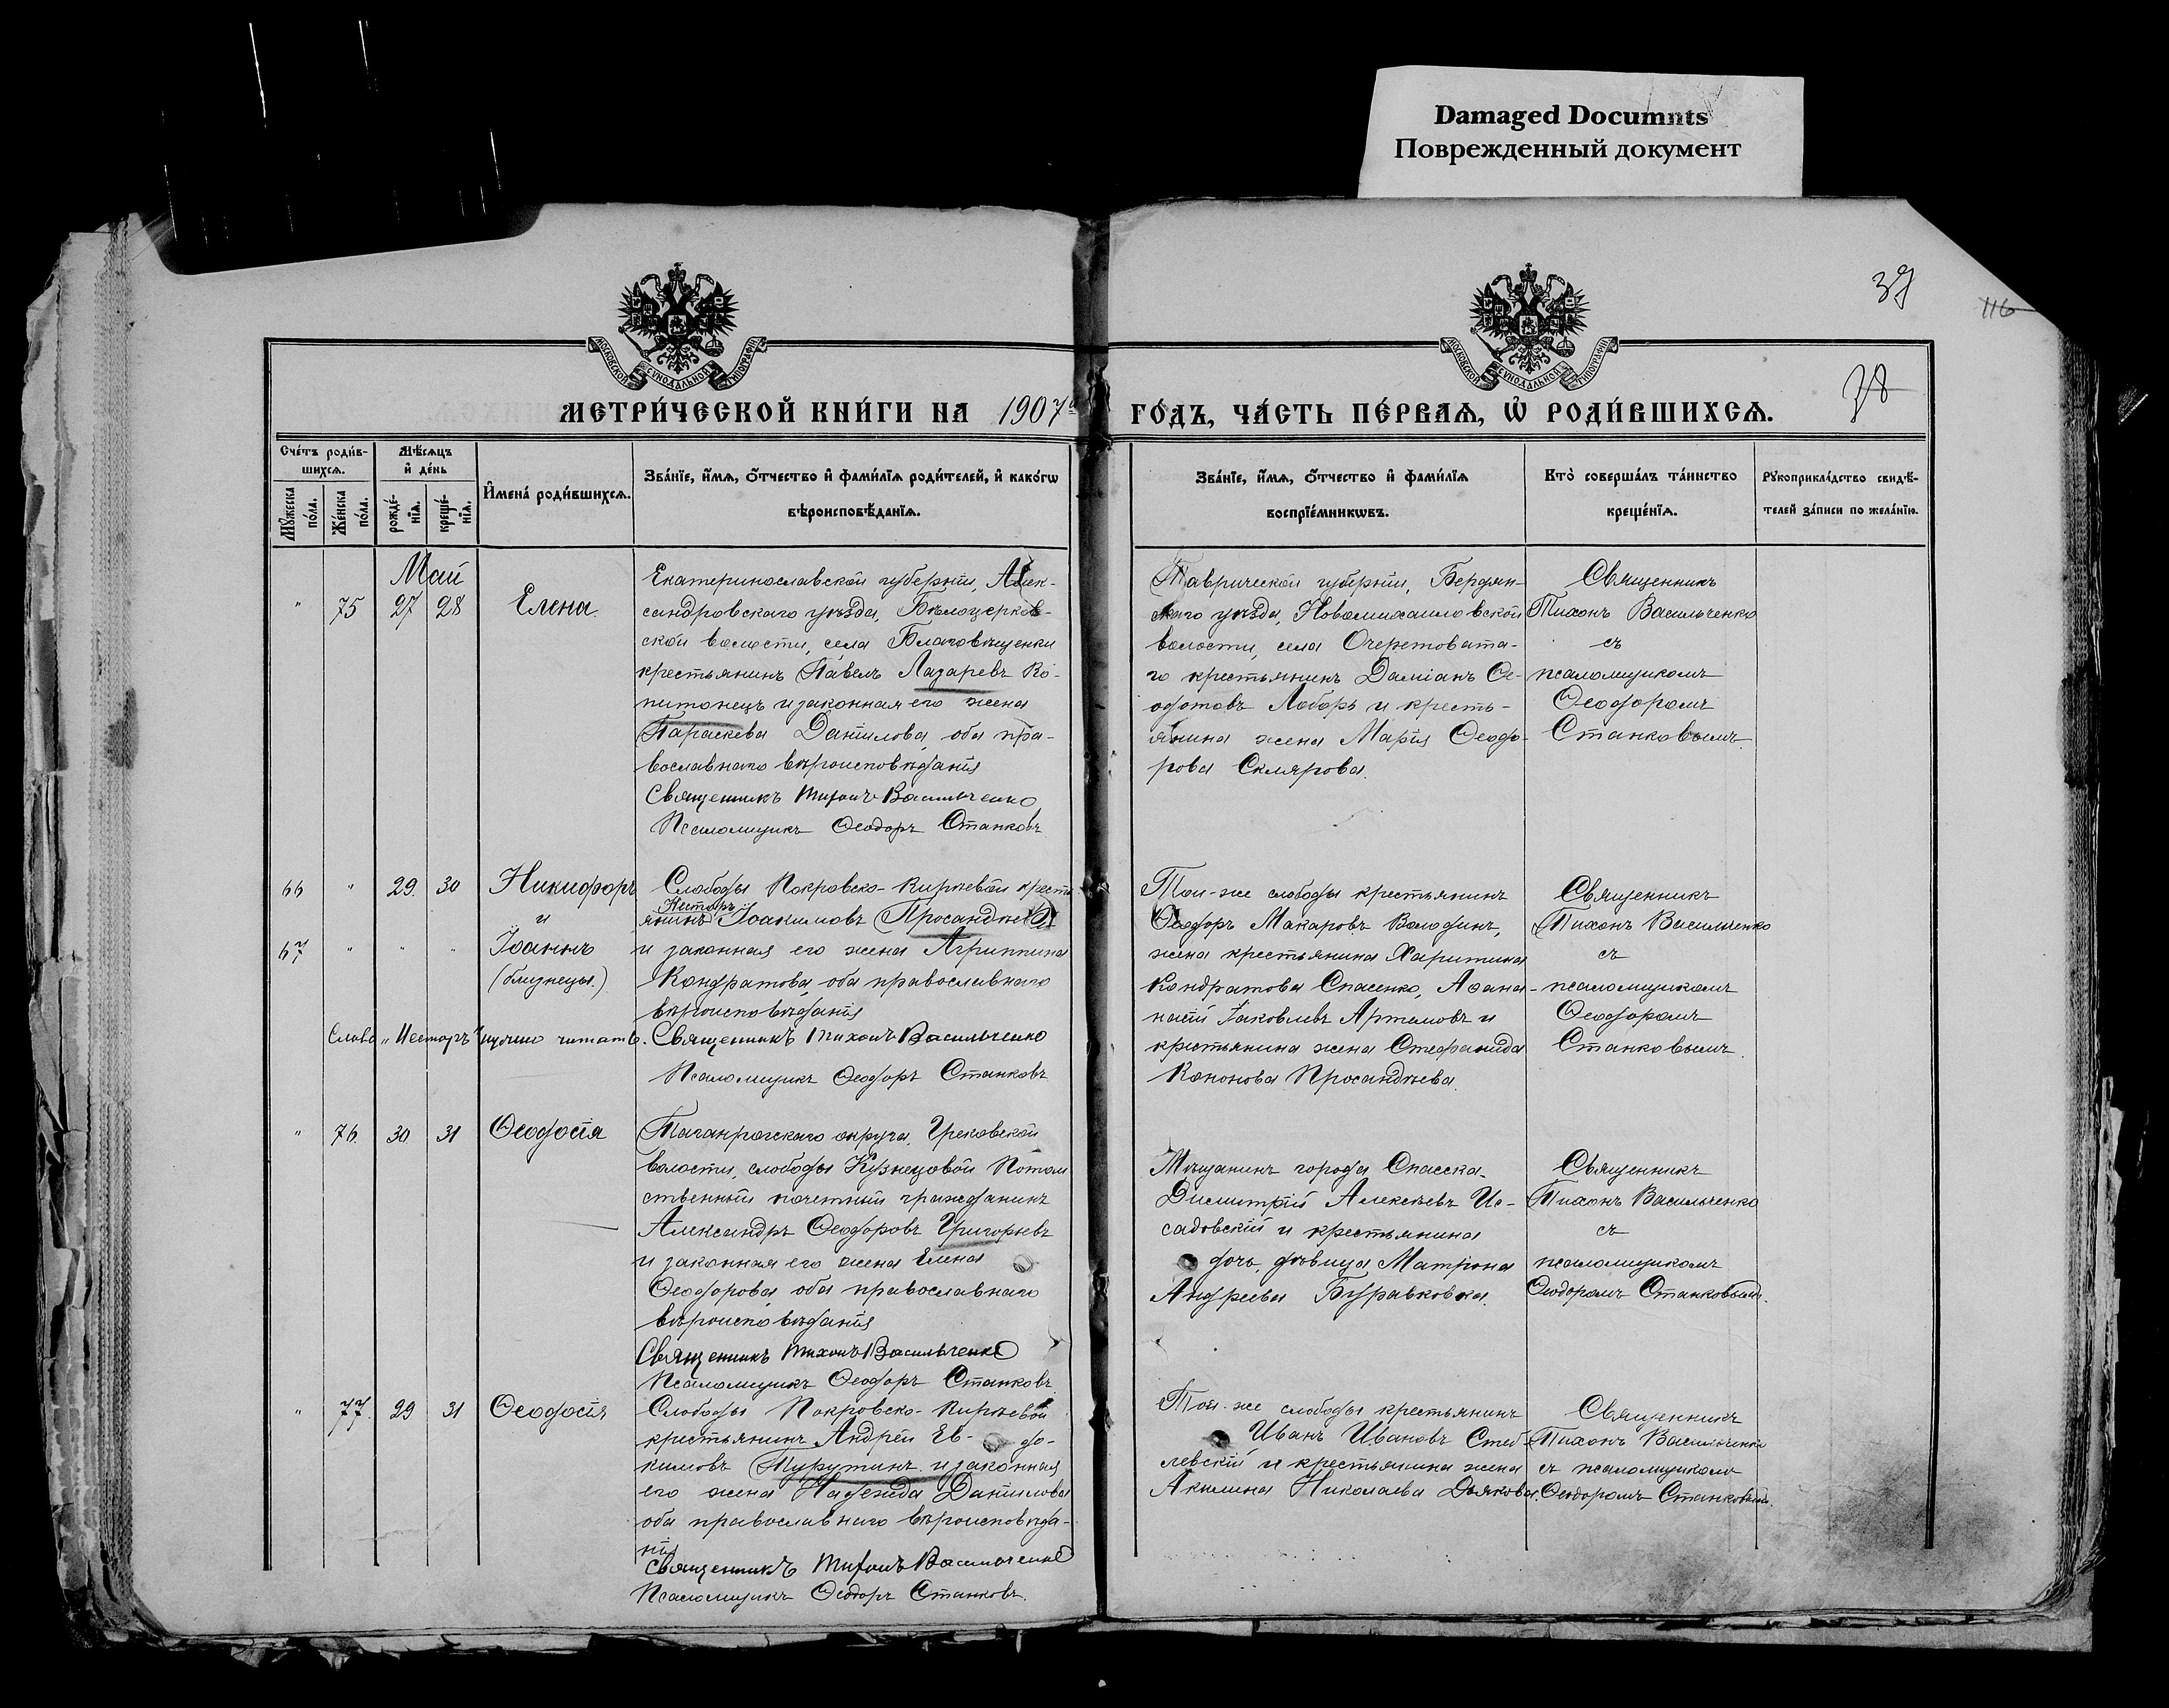 Damaged Documnts
Поврежденный документ
39
116
78
МОСКОВСКОЙ СУНОДАЛЬНОЙ ТИПОГРАФІИ
МОСКОВСКОЙ СУНОДАЛЬНОЙ ТИПОГРАФІИ
МЕТРИ́ЧЕСКОЙ КНИ́ГИ НА 1907й ГО́ДЪ, ЧА́СТЬ ПЕ́РВАѦ, Ѡ҆ РОДИ́ВШИХСѦ.
Сче́тъ роди́в-
шихсѧ.
Мꙋ́жеска
по́ла.
Же́нска
по́ла.
Мѣ́сѧцъ
и҆ де́нь
рожде́-
нїѧ.
креще́-
нїѧ.
И҆мена́ роди́вшихсѧ.
Зва́нїе, и҆́мѧ, о҆́тчество и҆ фами́лїѧ роди́телей, и҆ како́гѡ
вѣроисповѣ́данїѧ.
Зва́нїе, и҆́мѧ, о҆́тчество и҆ фами́лїѧ
воспрїе́мникѡвъ.
Кто̀ соверша́лъ та́инство
креще́нїѧ.
Рꙋкоприкла́дство свидѣ́-
телей за́писи по жела́нїю.
Май
" 75 27 28 Елена.
Екатеринославской губерніи, Алек-
сандровскаго уѣзда, Бѣлоцерков-
ской волости, села Благовѣщенки
крестьянинъ Павелъ Лазаревъ Ко-
питонецъ и законная его жена
Параскева Даніилова, оба пра-
вославнаго вѣроисповѣданія
Священникъ Тихонъ Васильченко
Псаломщикъ Ѳеодоръ Станковъ
Таврической губерніи, Бердян-
скаго уѣзда, Новомихаиловской
волости, села Очеретовата-
го крестьянинъ Даміанъ Ѳе-
одотовъ Лоборь и кресть-
янина жена Марія Ѳеодо-
рова Склярова.
Священникъ
Тихонъ Васильченко
съ
псаломщикомъ
Ѳеодоромъ
Станковымъ.
66 " 29. 30 Никифоръ
и
67 " " " Іоаннъ
(близнецы.)
Слободы Покровско-Кирѣевой кресть-
Несторъ
янинъ Іоакимовъ Просандѣевъ
и законная его жена Агриппина
Кондратова, оба православнаго
вѣроисповѣданія
Слово „Несторъ" нужно читать.
Священникъ Тихонъ Васильченко
Псаломщикъ Ѳеодоръ Станковъ
Той-же слободы крестьянинъ
Ѳеодоръ Макаровъ Володинъ,
жена крестьянина Харитина
Кондратова Спасенко, Аѳана-
насій Іаковлевъ Артемовъ и
крестьянина жена Стефанида
Кононова Просандѣева.
Священникъ
Тихонъ Васильченко
съ
псаломщикомъ
Ѳеодоромъ
Станковымъ.
" 76. 30 31 Ѳеодосія
Таганрогскаго округа, Грековской
волости, слободы Кузнецовой Потом
ственный почетный гражданинъ
Александръ Ѳеодоровъ Григорьевъ
и законная его жена Елена
Ѳеодорова, оба православнаго
вѣроисповѣданія
Священникъ Тихонъ Васильченко
Псаломщикъ Ѳеодоръ Станковъ
Мѣщанинъ города Спасска.
Димитрій Алексѣевъ Ис-
садовскій и крестьянина
дочь, дѣвица Матрона
Андреева Буравковка.
Священникъ
Тихонъ Васильченко
съ
псаломщикомъ
Ѳеодоромъ Станковымъ.
" 77. 29 31 Ѳеодосія
Слободы Покровско-Кирѣевой
крестьянинъ Андрей Ев-до-
кимовъ Турутинъ и законная
его жена Надежда Даніилова
оба православнаго вѣроисповѣда-
нія
Священникъ Тихонъ Васильченко
Псаломщикъ Ѳеодоръ Станковъ.
Той-же слободы крестьянинъ
Иванъ Ивановъ Стеб-
левскій и крестьянина жена
Акилина Николаева Дьякова.
Священникъ
Тихонъ Васильченко
съ псаломщикомъ
Ѳеодоромъ Станковымъ.